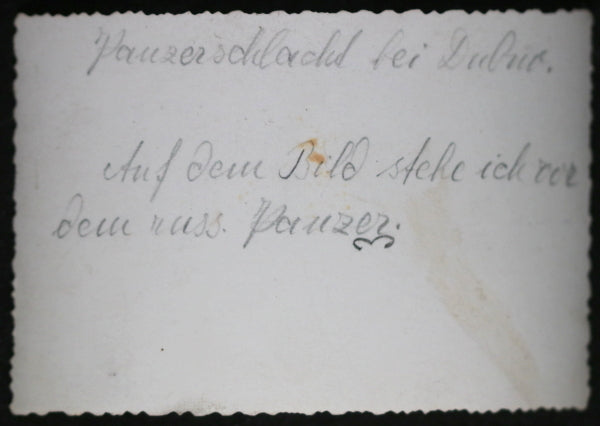 Panzerschlacht bei Dubno.
Auf dem Bild stehe ich vor
dem russ. Panzer.